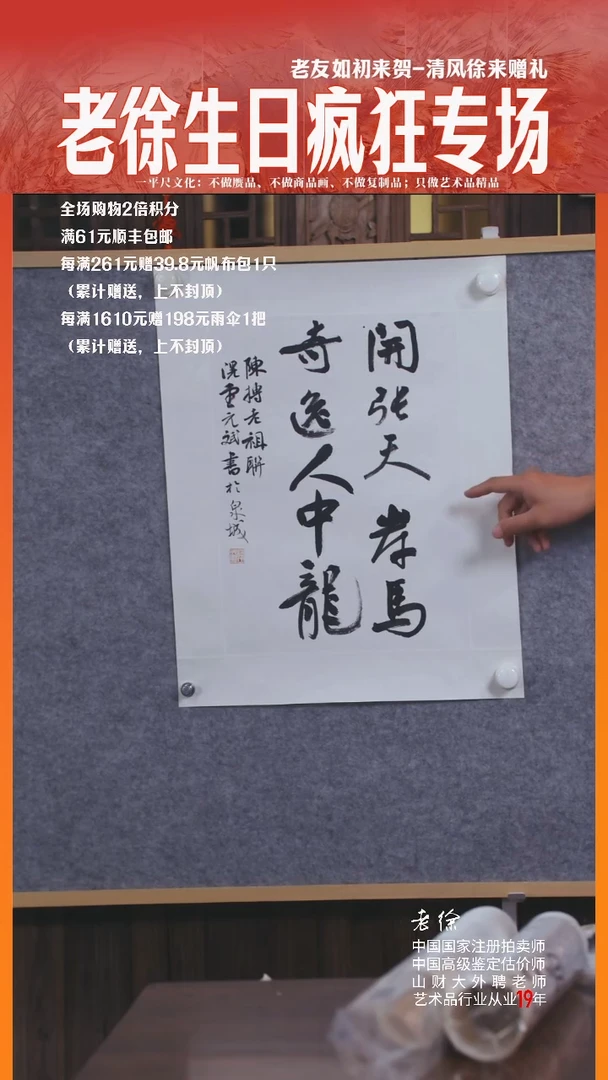 老友如初来贺-清风徐来赠礼
老徐生日疯狂专场
一平尺文化：不做赝品、不做商品画、不做复制品；只做艺术品精品
全场购物2倍积分
满61元顺丰包邮
每满261元赠39.8元帆布包1只
（累计赠送，上不封顶）
每满1610元赠198元雨伞1把
（累计赠送，上不封顶）
開张天岸馬
奇逸人中龍
陳摶老祖聯
元斌書於泉城
老徐
中国国家注册拍卖师
中国高级鉴定估价师
山财大外聘老师
艺术品行业从业19年